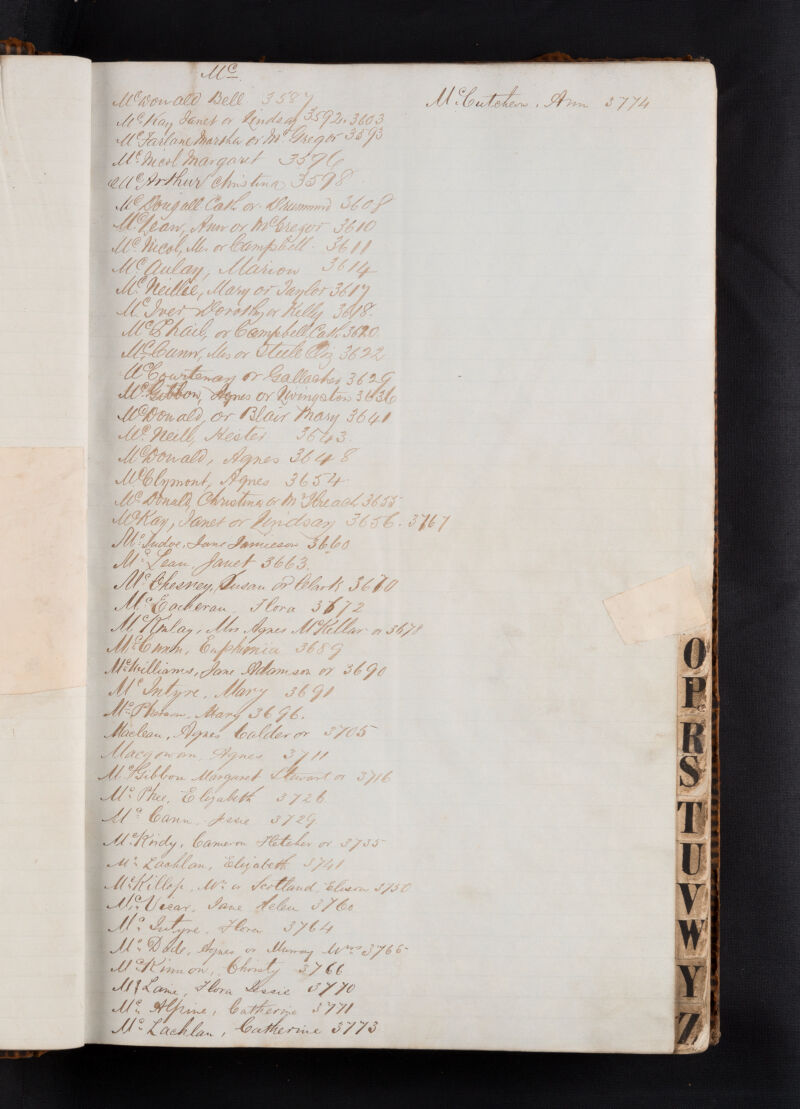 Mc.
McDonald Bell 3587
McKay Janet or Lindsay 3592. 3603
McFarlane Martha or McGregor 3593
McNicol Margaret 3596
McArthur Christina 3598
McDougall Cath. or Drummond 3608
McLean, Ann or McGregor 3610
McNicol, M. or Campbell. 3611
McAulay, Marion 3614
McNeillie, Mary or Taylor 3617
McIver Dorothy or Kelly 3618.
McPhail, or Campbell, Cath. 3620.
McCunn, Mrs or Steele 3622
McCourtenay or Gallacher 3629
McGibbon, Agnes or Livingston 3636
McDonald, or Blair Mary 3641
McNeill, Hester 3643.
McDonald, Agnes 3648
McClymont, Agnes 3654
McDonald, Christina or 3655
McKay, Janet or Lindsay 3656. 3767
McJudoe, Jane Jamieson 3660
McLean, Janet 3663.
McChesney, Susan or Clark 3670
McEacheran, Flora 3672
McKinlay, Mrs Agnes McKellar or 3678
McCunn, Euphemia 3689
McWilliams, Jane Adamson or 3690
McIntyre, Mary 3691
Mary 3696.
Maclean, Agnes Calder or 3705
Macgowan, Agnes 3711
McGibbon Margaret Stewart or 3716
McPhee, Elizabeth 3726
McCann, Jessie 3729
McKirdy, Cameron Fletcher or 3735
McLachlan, Elizabeth 3741
McKillop, Mc or Scotland, Elison 3750
McVicar, Jane Helen 3760
McIntyre, Flora 3764
McDade, Agnes or Murray Mrs 3765
McKinnon, Christy 3766
McLane, Flora Jessie 3770
McAlpine, Catherine 3771
McLachlan, Catherine 3773
McCutcheon, Ann 3774
O
P
R
S
T
U
V
W
Y
Z